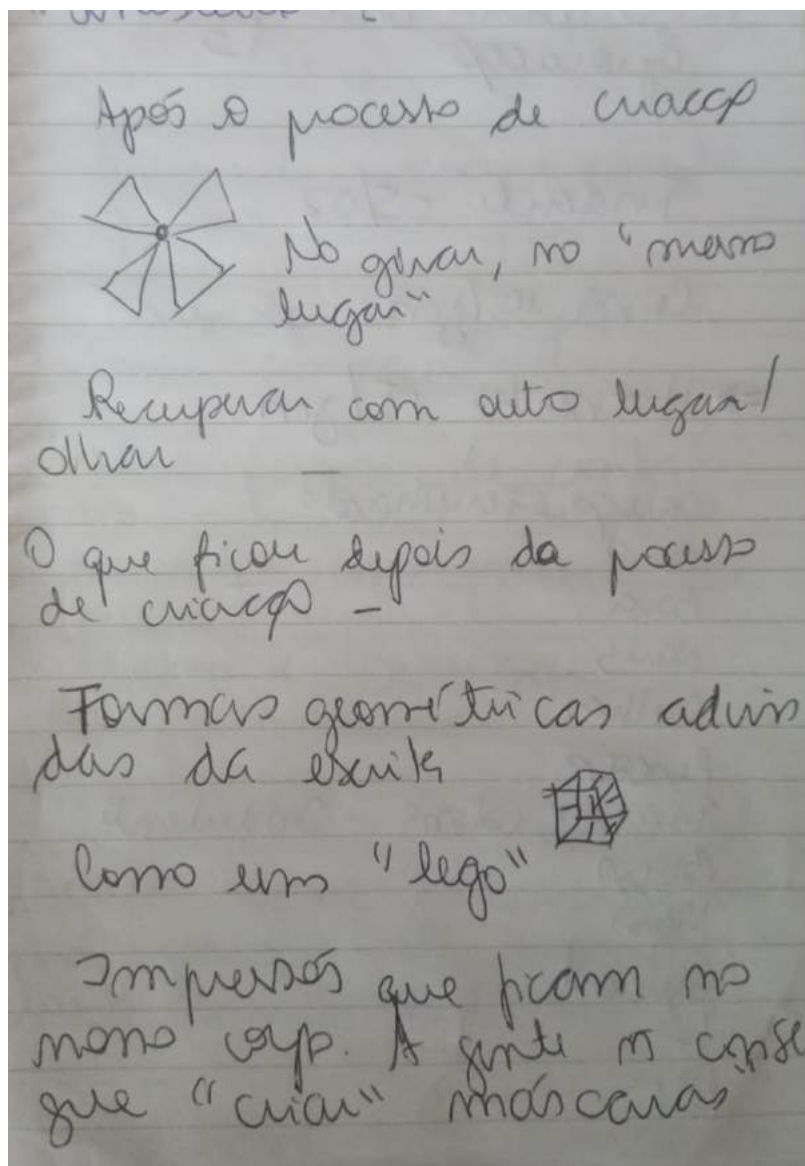 Após o processo de criação
No girar, no "mesmo
lugar"
Recuperar com outro lugar/
olhar —
O que ficou depois da processo
de criação –
Formas geométricas advin
das da escrita
Como um "lego"
Impressões que ficam no
nosso corpo. A gente ñ conse
gue "criar" máscaras"